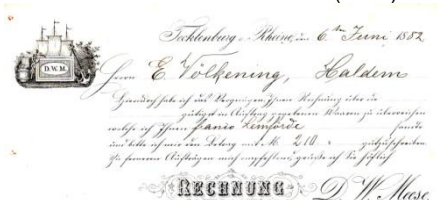 D.W.M.
Tecklenburg u. Rheine, den 6ten Juni 1882
Herrn E. Völkening, Haldem
Hierdurch habe ich das Vergnügen Ihnen Rechnung über die
gütigst in Auftrag gegebenen Waaren zu überreichen
welche ich Ihnen franco Lemförde sandte
und bitte ich mir den Betrag mit M. 210 gutzuschreiben
Zu ferneren Aufträgen mich empfehlend, grüße ich Sie höflich
RECHNUNG D. W. Meese